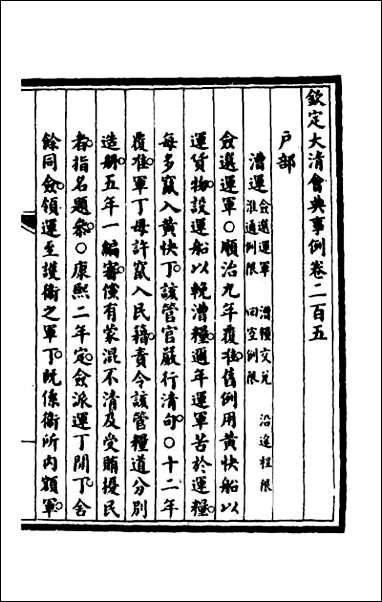 欽定大清會典事例卷二百五
戶部
漕運 僉選運軍 漕糧交兌 沿途程限
淮通例限 回空例限
僉選運軍○順治九年覆准舊例用黃快船以
運貨物設運船以輓漕糧邇年運軍苦於運糧
每多竄入黃快丁該管官嚴行清句○十二年
覆准軍丁毋許竄入民籍責令該管糧道分別
造冊五年一編審儻有蒙混不清及受賄擾民
者指名題參○康熙二年定僉派運丁閒丁舍
餘同僉領運至護衛之軍丁旣係衛所內額軍